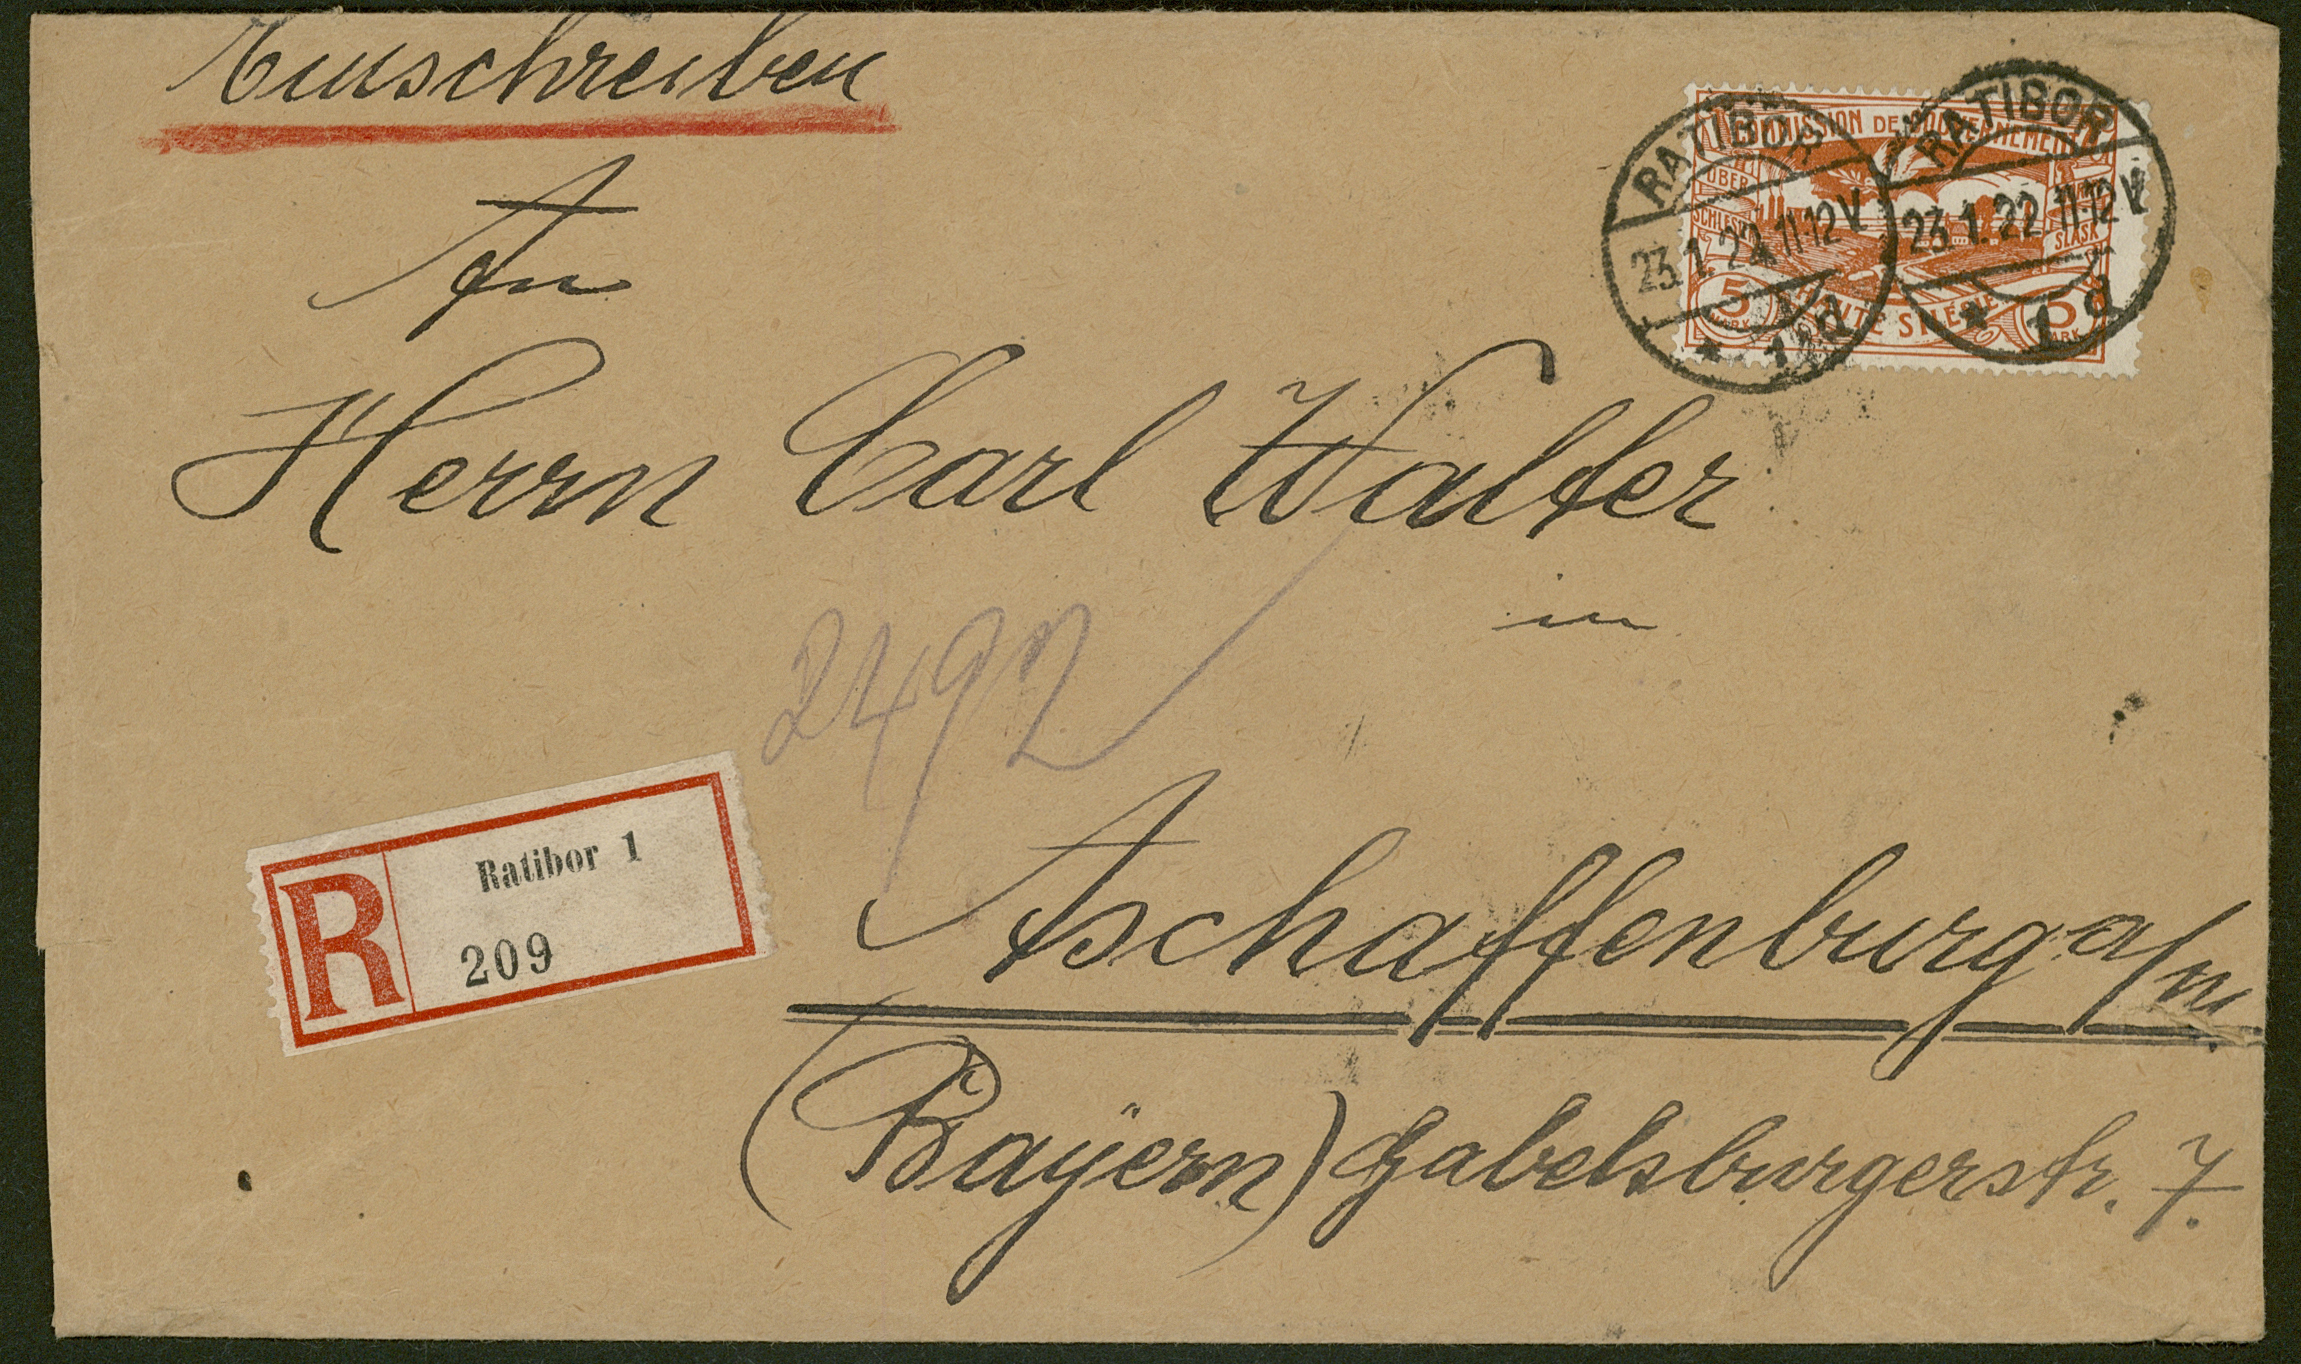 Einschreiben
An
Herrn Carl Walter
in
2492
Aschaffenburg a/M.
(Bayern) Gabelsburgerstr. 7.
R
Ratibor 1
209
COMMISSION DE GOUVERNEMENT
OBER
SCHLESIEN
ŚLĄSK
HAUTE SILÉSIE
5 MARK
5 MARK
RATIBOR
23.1.22 11-12 V
* 1 d
RATIBOR
23.1.22 11-12 V
* 1 d